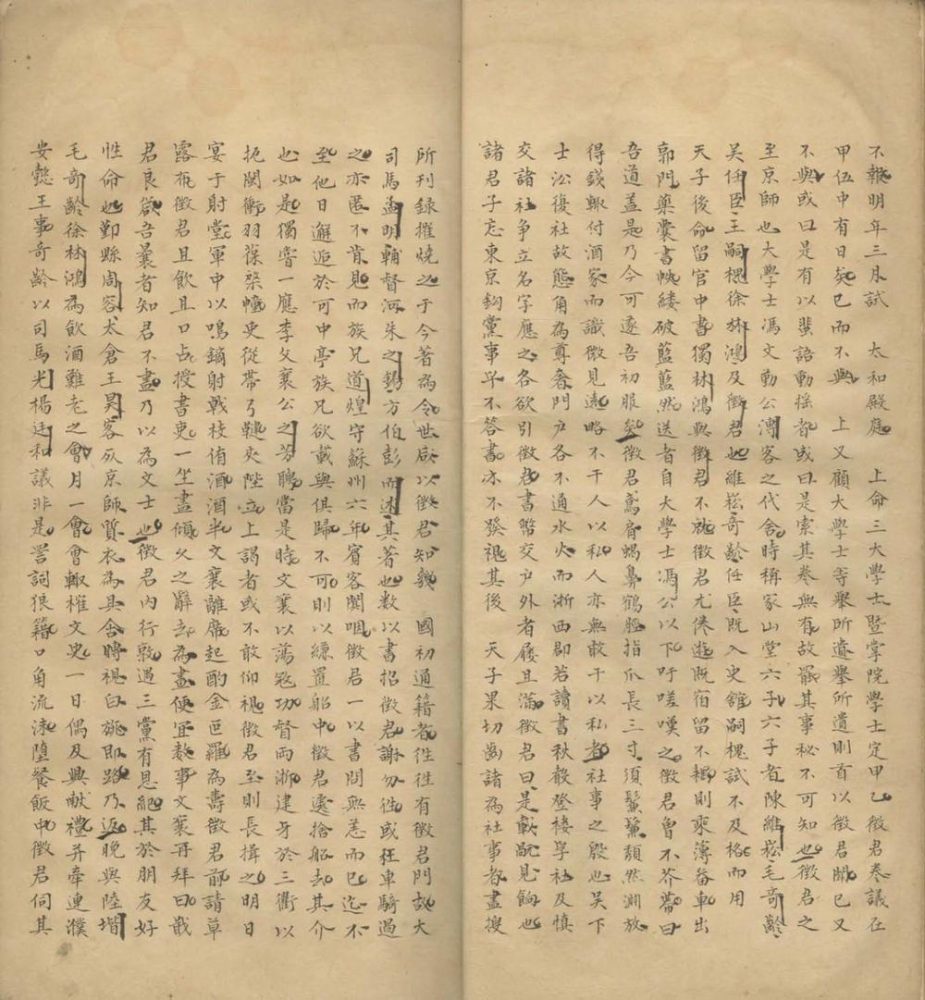 不報明年三月試　太和殿應　上命三大學士暨掌院學士定甲乙徵君卷議在
甲伍中有日矣已而不與　上又顧大學士等舉所遺舉所遺則首以徵君聞已又
不與或曰是有以蜚語動搖者或曰是索其卷無有故罷其事秘不可知也徵君之
至京師也大學士馮文勤公溥客之代舍時稱家山堂六子六子者陳維崧毛奇齡
吳任臣王嗣槐徐林鴻及徵君也維崧奇齡任臣既入史館嗣槐試不及格而用
天子後命留官中書獨林鴻與徵君不就徵君尤倦遊既宿留不耦則乘薄畚車出
郭門藥囊書帙縷破藍藍然送者自大學士馮公以下吁嗟嘆之徵君曾不芥蒂曰
吾道蓋是乃今可遂吾初服矣徵君鳶肩蝎鼻鶴脰指爪長三寸須鬢鬑頿然淵放
得錢輒付酒家而識微見遠略不干人以私人亦無敢干以私者社事之殷也吳下
士沿復社故態角為尊奢門戶各不通水火而浙西郡若讀書秋般登樓學社及慎
交諸社爭立名字應之各欲引徵君書幣交戶外者屨且滿徵君曰是歃觎見餉也
諸君子忘東京鉤黨事乎不答書亦不發視其後　天子果切齒諸為社事者盡搜
所刊錄摧燒之于今著為令世咸以徵君知幾　國初通籍者往往有徵君門故大
司馬孟明輔督河朱之錫方伯彭而述其著也數以書招徵君謝勿往或枉車騎過
之亦匿不肯見而族兄道煌守蘇州六年賓客闐咽徵君一以書問無恙而已迄不
至他日邂逅於可中亭族兄欲載與俱歸不可則以練置船中徵君遽捨船去其介
也如是獨嘗一應李文襄公之芳聘當是時文襄以蕩寇功督兩浙建牙於三衢以
扼閩衝羽葆棨幰吏從帶弓鞬夾陛立上謁者或不敢仰視徵君至則長揖之明日
宴于射堂軍中以鳴鏑射戟枝侑酒酒半文襄離席起酌金叵羅為壽徵君前請草
露布徵君且飲且口占授書吏一坐盡傾久之辭去為畫便宜數事文襄再拜曰哉
君良歙吾曩者知君不盡乃以為文士也徵君內行敦過三黨有恩紀其於朋友好
性命也鄞縣周容太倉王昊客死京師質衣為具含斂視臼旐即路乃返晚與陸堦
毛奇齡徐林鴻為飲酒難老之會月一會會輒榷文史一日偶及興献禮并牽連濮
安懿王事奇齡以司馬光楊廷和議非是詈詞狠籍口角流沫墮餐飯中徵君伺其